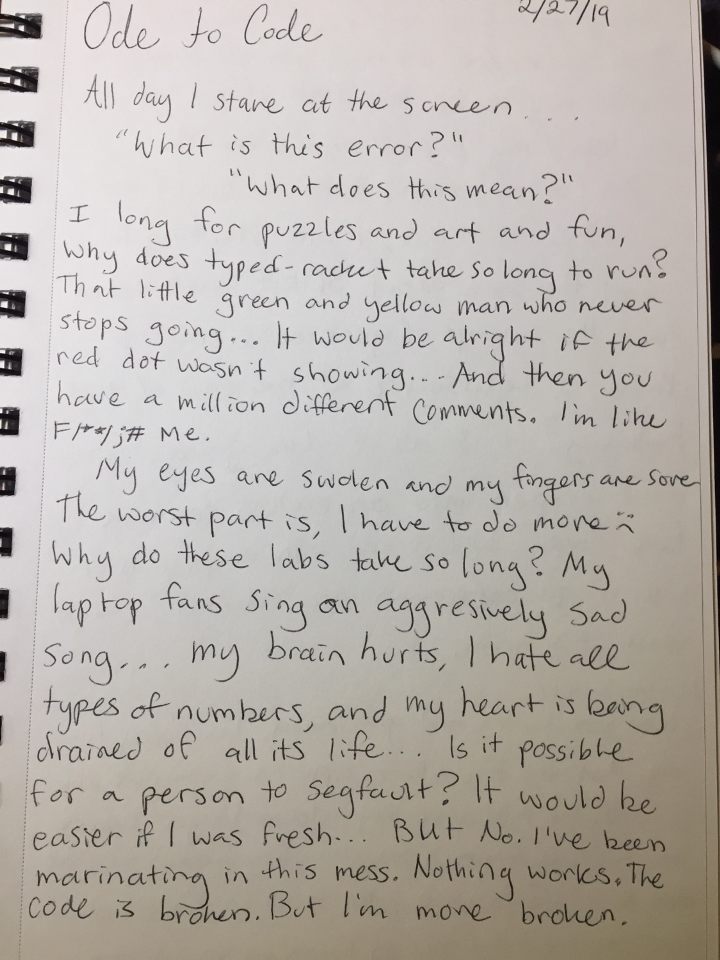 2/27/19
Ode to Code
All day I stare at the screen....
"What is this error?"
"What does this mean?"
I long for puzzles and art and fun,
Why does typed-racket take so long to run?
That little green and yellow man who never
stops going... It would be alright if the
red dot wasn't showing... And then you
have a million different comments. I'm like
F/**/;# Me.
My eyes are swolen and my fingers are sore
The worst part is, I have to do more :(
Why do these labs take so long? My
laptop fans sing an aggresively sad
song... my brain hurts, I hate all
types of numbers, and my heart is being
drained of all its life... Is it possible
for a person to segfault? It would be
easier if I was fresh... But No. I've been
marinating in this mess. Nothing works. The
code is broken. But I'm more broken.